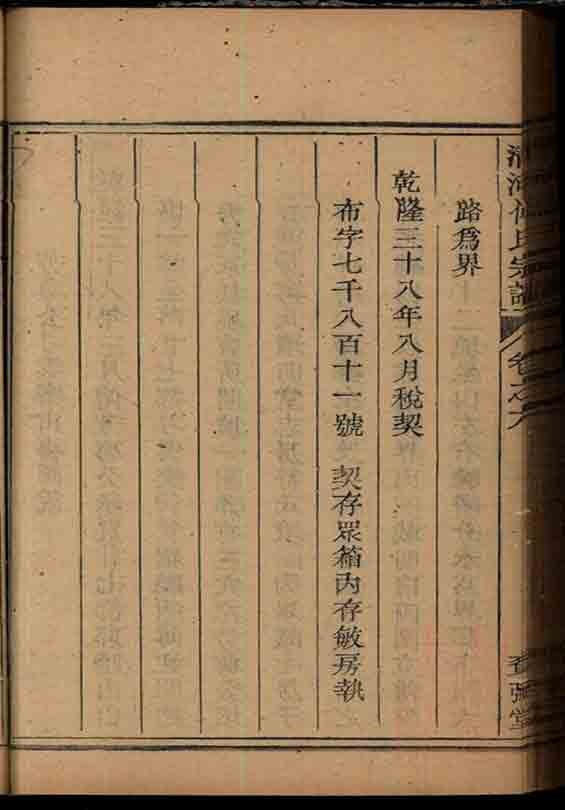 路為界
乾隆三十八年八月稅契
布字七千八百十一號 契存眾箱內存敏房執
氏宗譜
卷之
堂